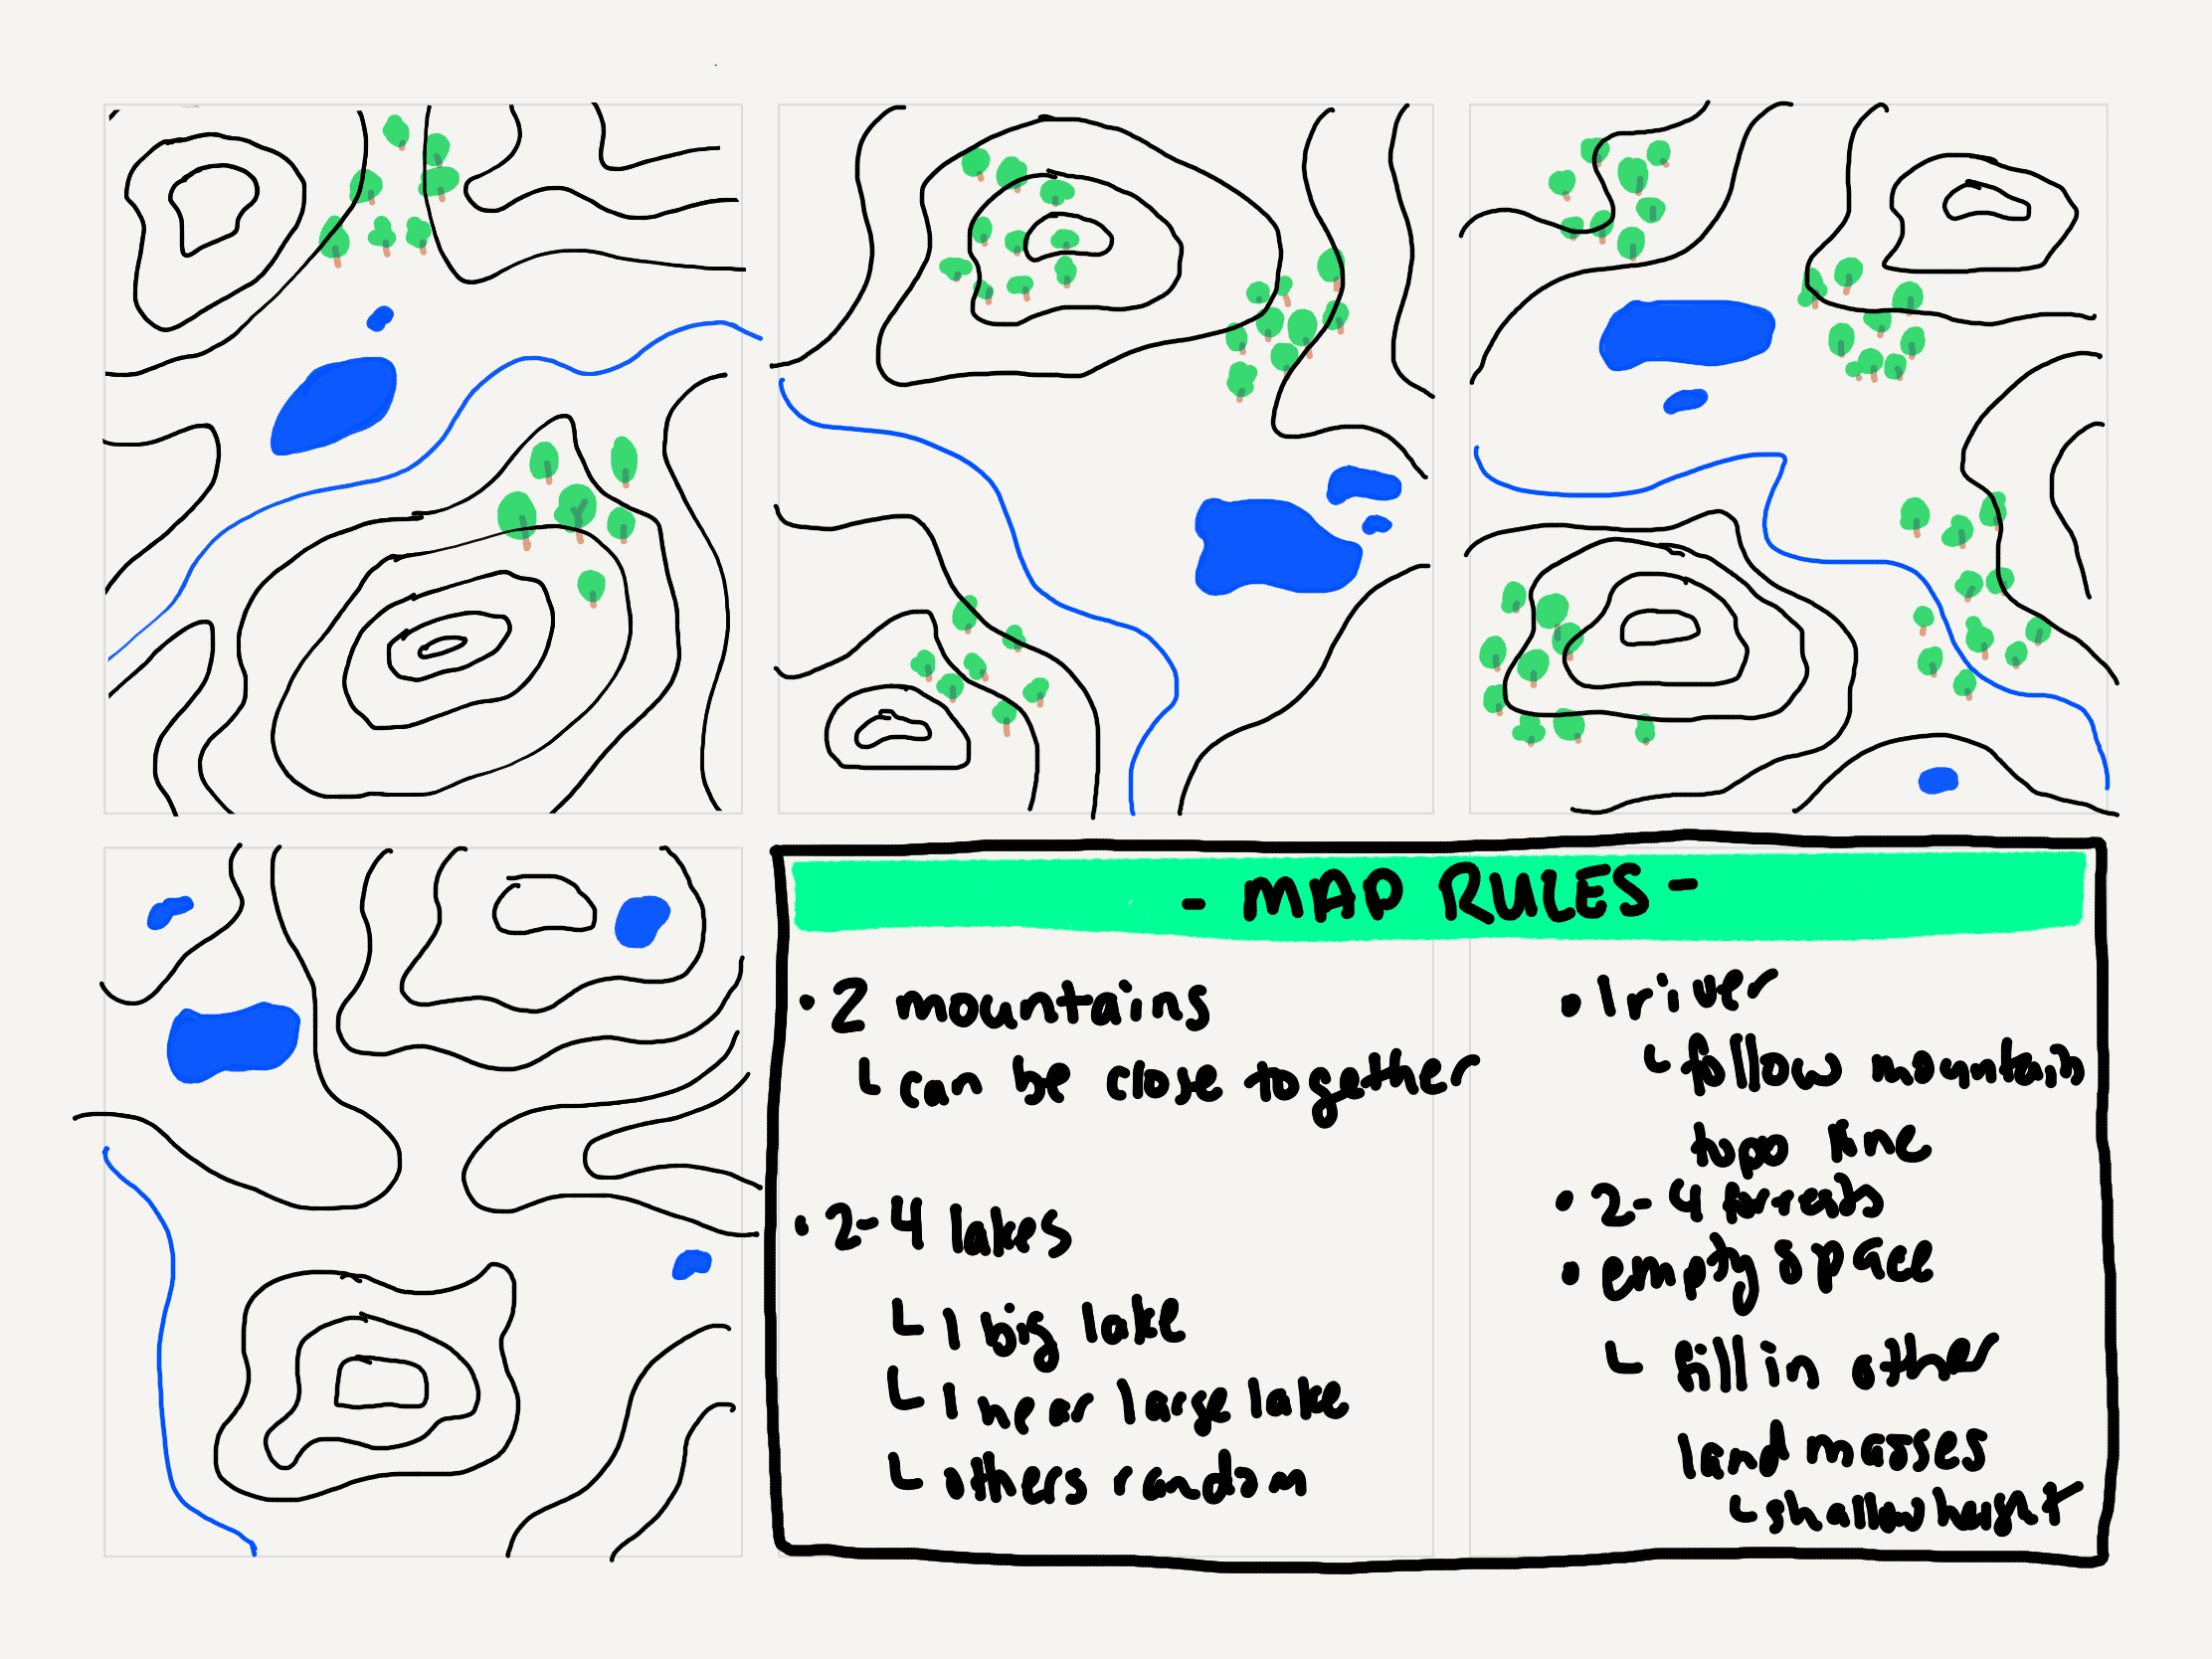 - MAP RULES -
• 2 mountains
└ can be close together
• 2-4 lakes
└ 1 big lake
└ 1 near large lake
└ others random
• 1 river
└ follow mountain
topo line
• 2-4 forrests
• empty space
└ fill in other
land masses
└ shallow height